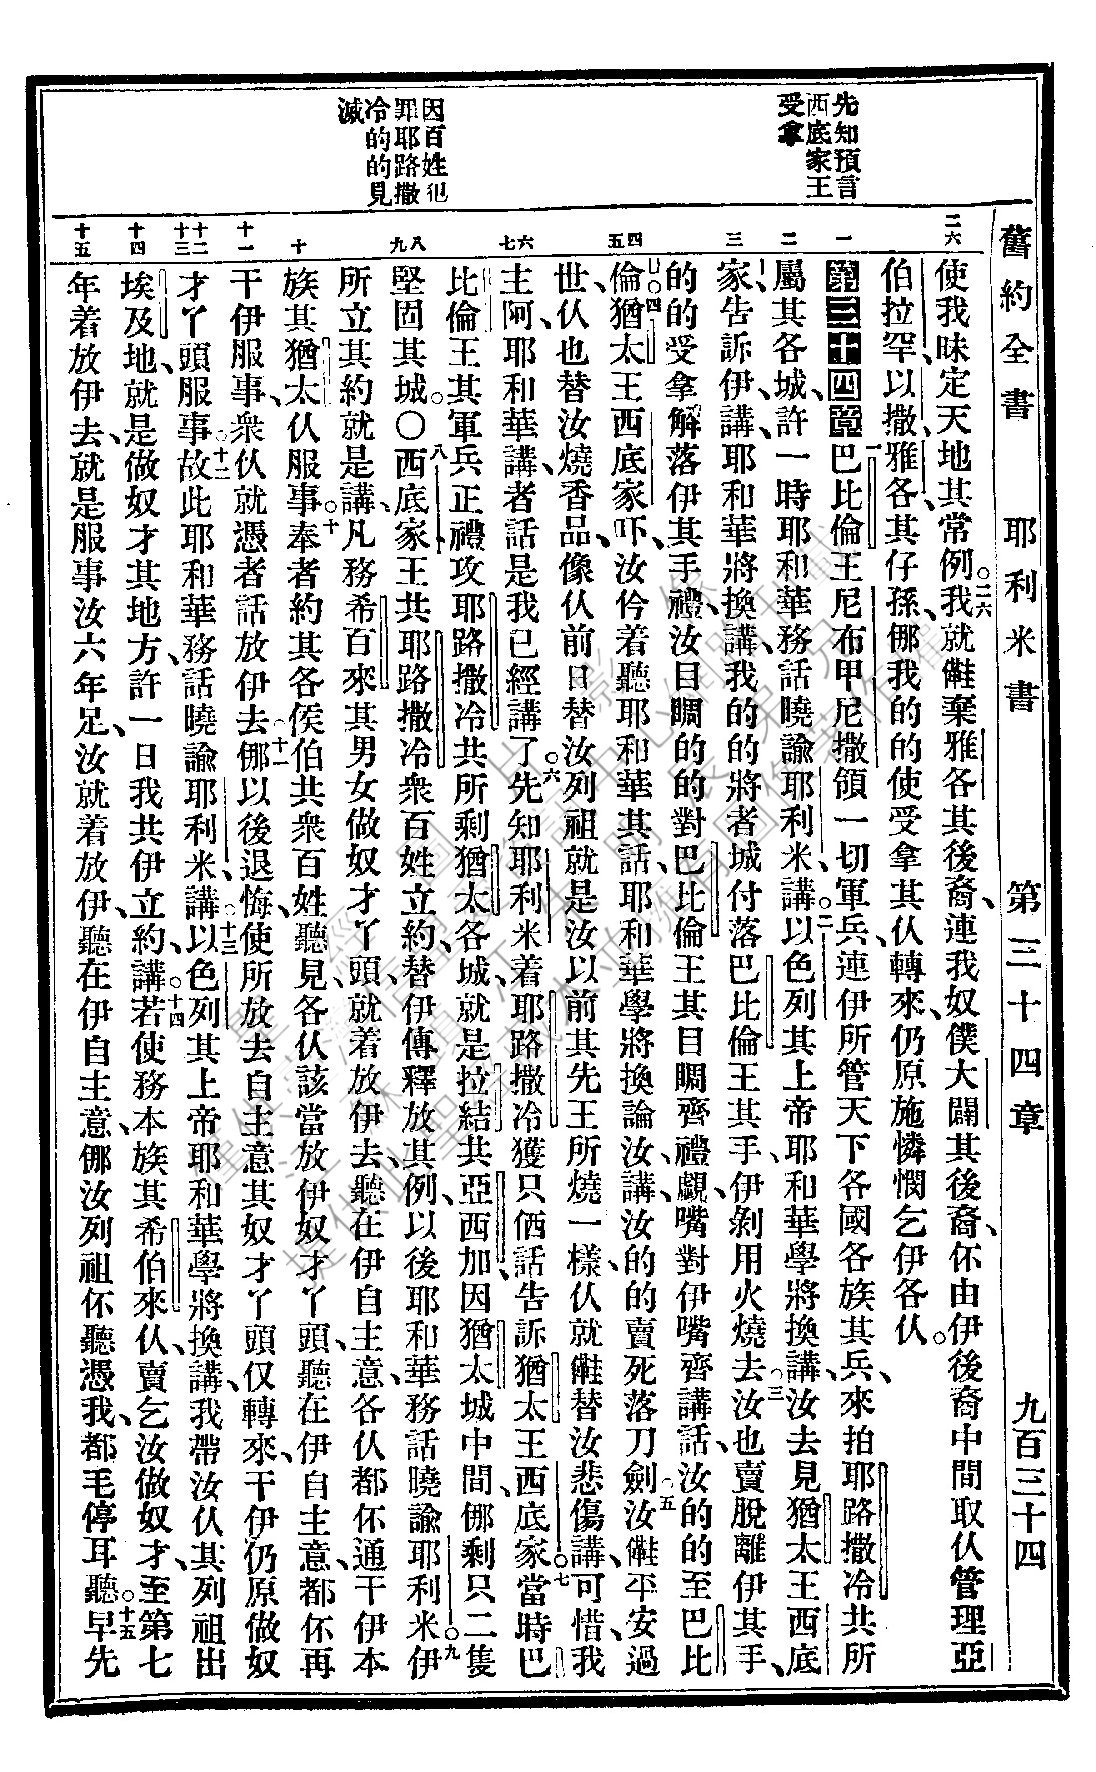 舊約全書 耶利米書 第三十四章 九百三十四
先知預言
西底家王
受拿
因百姓犯
罪耶路撒
冷的的見
滅
二六
一
二
三
四
五
六
七
八
九
十
十一
十二
十三
十四
十五
使我昧定天地其常例。二六我就僅棄雅各其後裔、連我奴僕大闢其後裔、伓由伊後裔中間取伙管理亞
伯拉罕、以撒、雅各其仔孫、㑚我的的使受拿其伙轉來、仍原施憐憫乞伊各伙。
第三十四章 一巴比倫王尼布甲尼撒、領一切軍兵、連伊所管天下各國各族其兵、來拍耶路撒冷共所
屬其各城、許一時耶和華務話曉諭耶利米講、二以色列其上帝耶和華學將換講、汝去見猶太王西底
家、告訴伊講、耶和華將換講、我的的將者城付落巴比倫王其手、伊剝用火燒去、三汝也賣脫離伊其手、
的的受拿解落伊其手禮、汝目睭的的對巴比倫王其目睭齊禮、覷嘴對伊嘴齊講話、汝的的至巴比
倫。四猶太王西底家吓、汝伱着聽耶和華其話、耶和華學將換論汝講、汝的的賣死落刀劍、五汝僅平安過
世、伙也替汝燒香品、像伙前日替汝列祖就是汝以前其先王所燒一樣、伙就僅替汝悲傷講、可惜我
主阿、耶和華講、者話是我已經講了。六先知耶利米着耶路撒冷獲只俖話告訴猶太王西底家、七當時巴
比倫王其軍兵正禮攻耶路撒冷共所剩猶太各城、就是拉結共亞西加、因猶太城中間㑚剩只二隻
堅固其城。〇八西底家王共耶路撒冷衆百姓立約、替伊傳釋放其例、以後耶和華務話曉諭耶利米、九伊
所立其約就是講、凡務希百來其男女做奴才丫頭、就着放伊去、聽在伊自主意、各伙都伓通干伊本
族其猶太伙服事。十奉者約其各侯伯共衆百姓聽見、各伙該當放伊奴才丫頭、聽在伊自主意、都伓再
干伊服事、衆伙就憑者話放伊去、十一㑚以後退悔、使所放去自主意其奴才丫頭仅轉來、干伊仍原做奴
才丫頭服事。十二故此耶和華務話曉諭耶利米講、十三以色列其上帝耶和華學將換講、我帶汝伙其列祖出
埃及地、就是做奴才其地方、許一日我共伊立約講、十四若使務本族其希伯來伙、賣乞汝做奴才、至第七
年着放伊去、就是服事汝六年足、汝就着放伊、聽在伊自主意、㑚汝列祖伓聽憑我、都毛停耳聽。十五早先